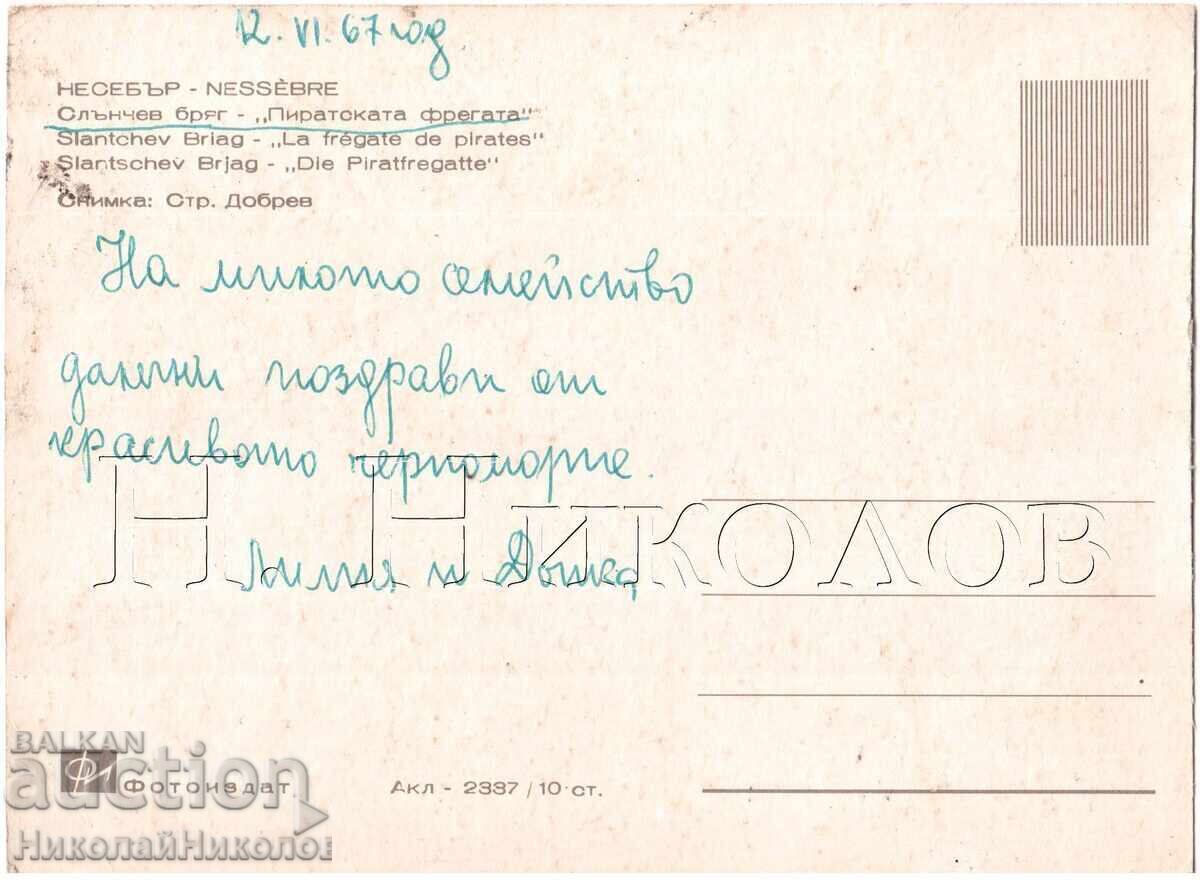 12. VI. 67 год
НЕСЕБЪР - NESSÈBRE
Слънчев бряг - „Пиратската фрегата"
Slantchev Briag - „La frégate de pirates"
Slantschev Brjag - „Die Piratfregatte"
Снимка: Стр. Добрев
На милото семейство
далечни поздрави от
красивото черноморие.
Н. Николов
Лиляя и Дошка
BALKAN
auction
Фотоиздат
Акл - 2337/10 ст.
НиколайНиколов